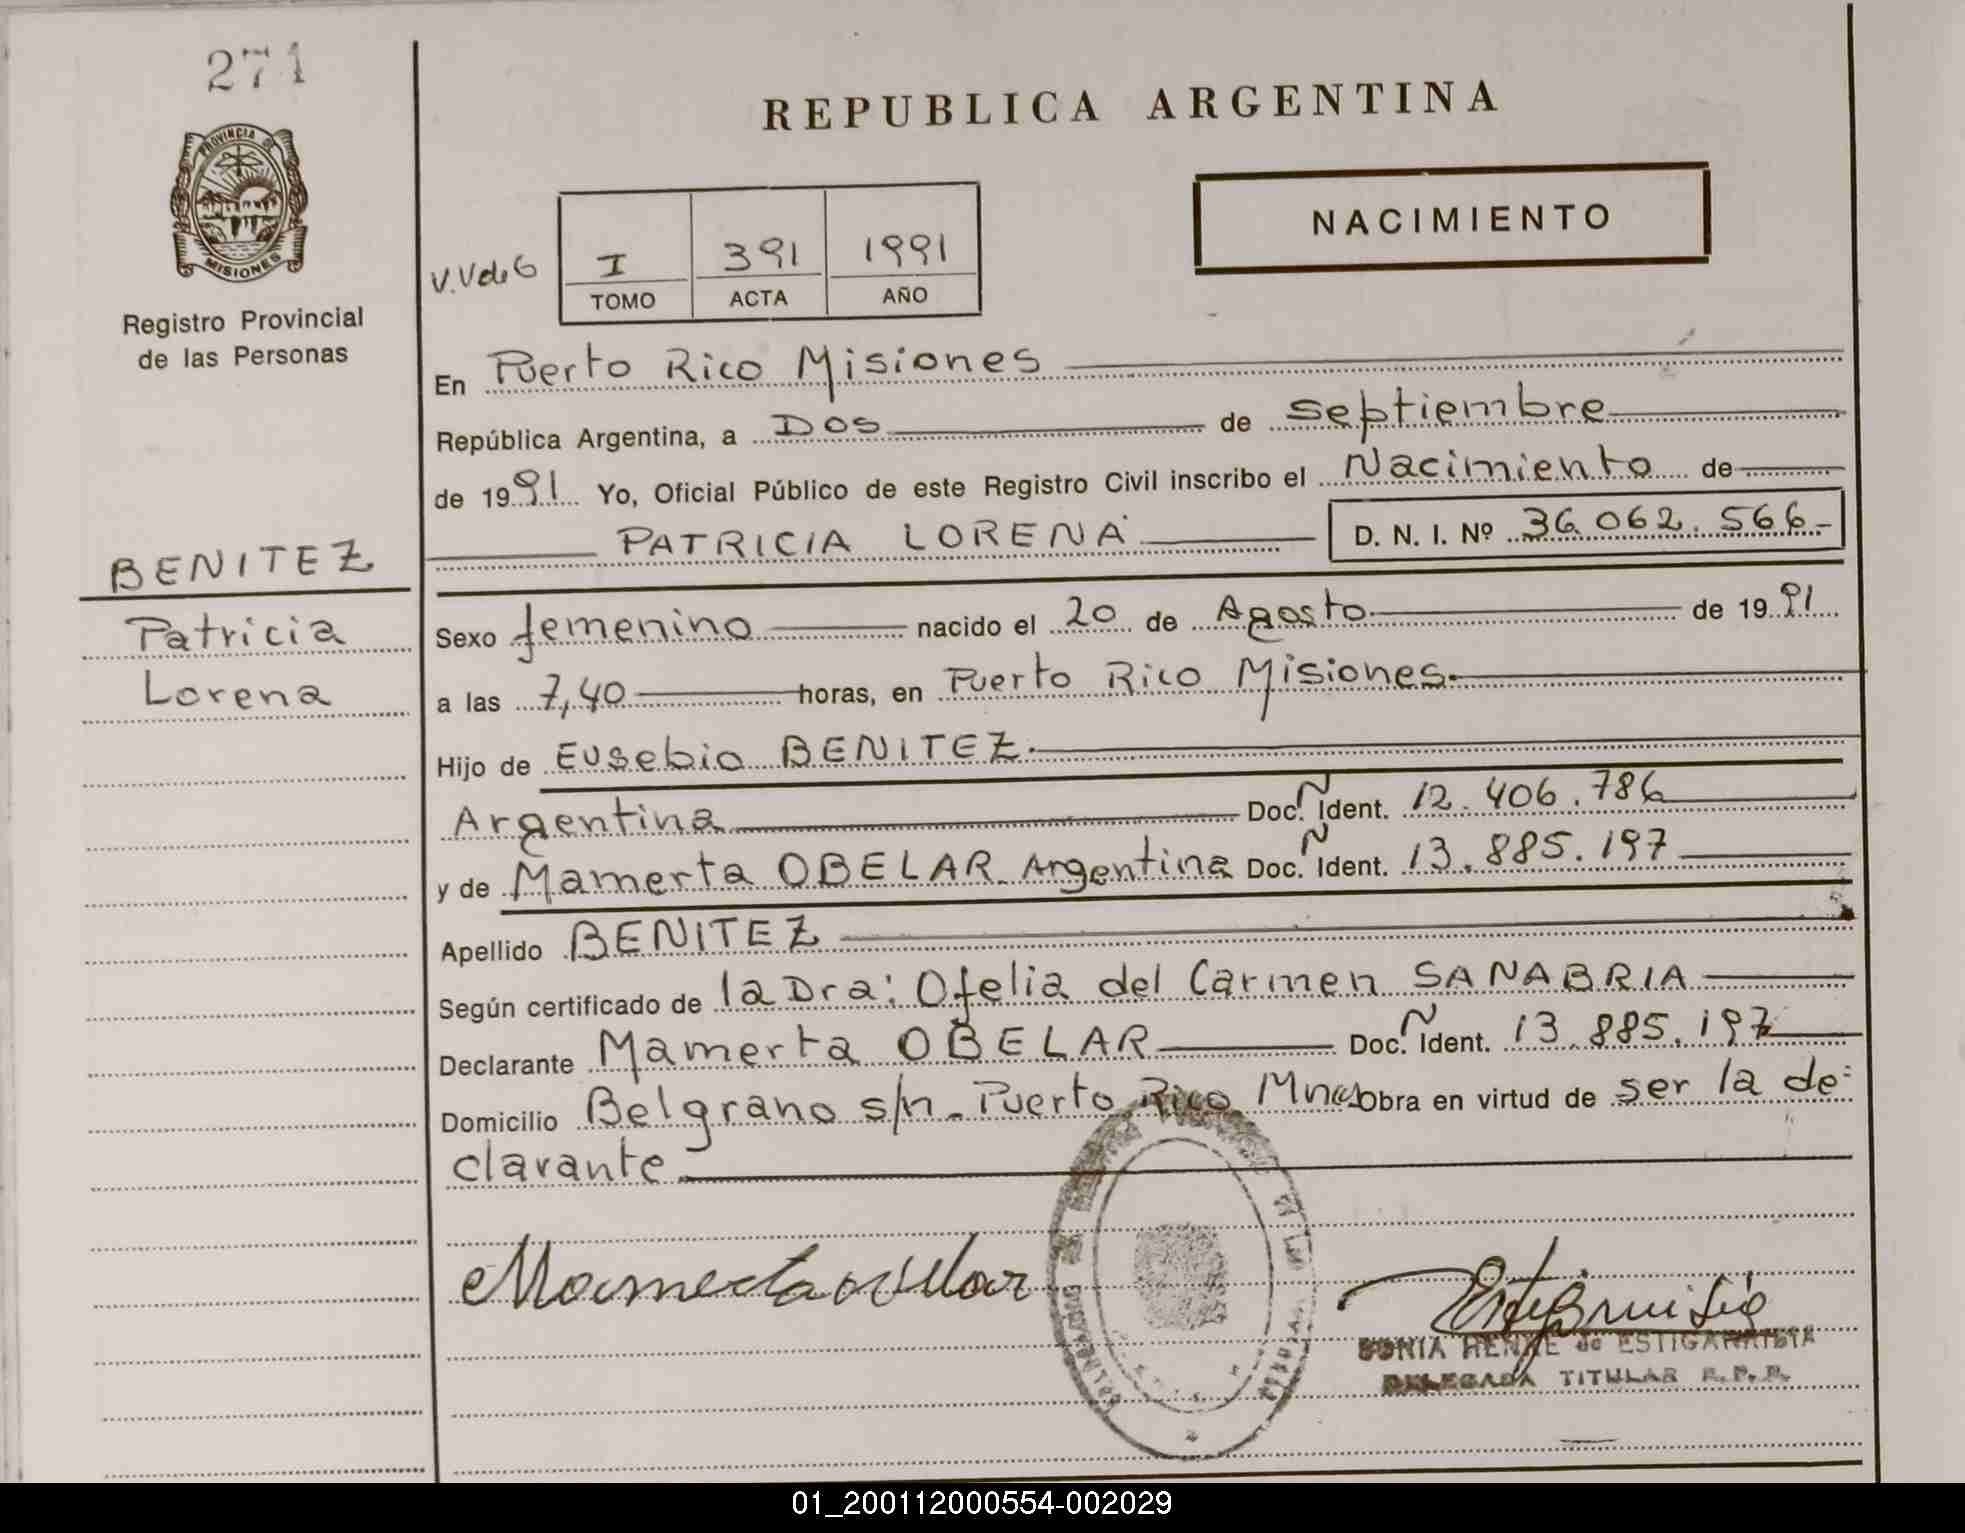 271
PROVINCIA DE
MISIONES
Registro Provincial
de las Personas
BENITEZ
Patricia
Lorena
REPUBLICA ARGENTINA
NACIMIENTO
V.V de G
I 391 1991
TOMO ACTA AÑO
En Puerto Rico Misiones
República Argentina, a Dos de septiembre
de 1991 Yo, Oficial Público de este Registro Civil inscribo el Nacimiento de
PATRICIA LORENA D. N. I. Nº 36.062.566-
Sexo femenino nacido el 20 de Agosto de 1991
a las 7,40 horas, en Puerto Rico Misiones.
Hijo de Eusebio BENITEZ.
Argentina Doc. Ident. 12.406.786
y de Mamerta OBELAR Argentina Doc. Ident. 13.885.197
Apellido BENITEZ
Según certificado de la Dra: Ofelia del Carmen SANABRIA
Declarante Mamerta OBELAR Doc. Ident. 13.885.197
Domicilio Belgrano s/n. Puerto Rico Mnes Obra en virtud de ser la de-
clarante
Mamerta obelar
SONIA HENNE de ESTIGARRIBIA
DELEGADA TITULAR R.P.P.
01_200112000554-002029